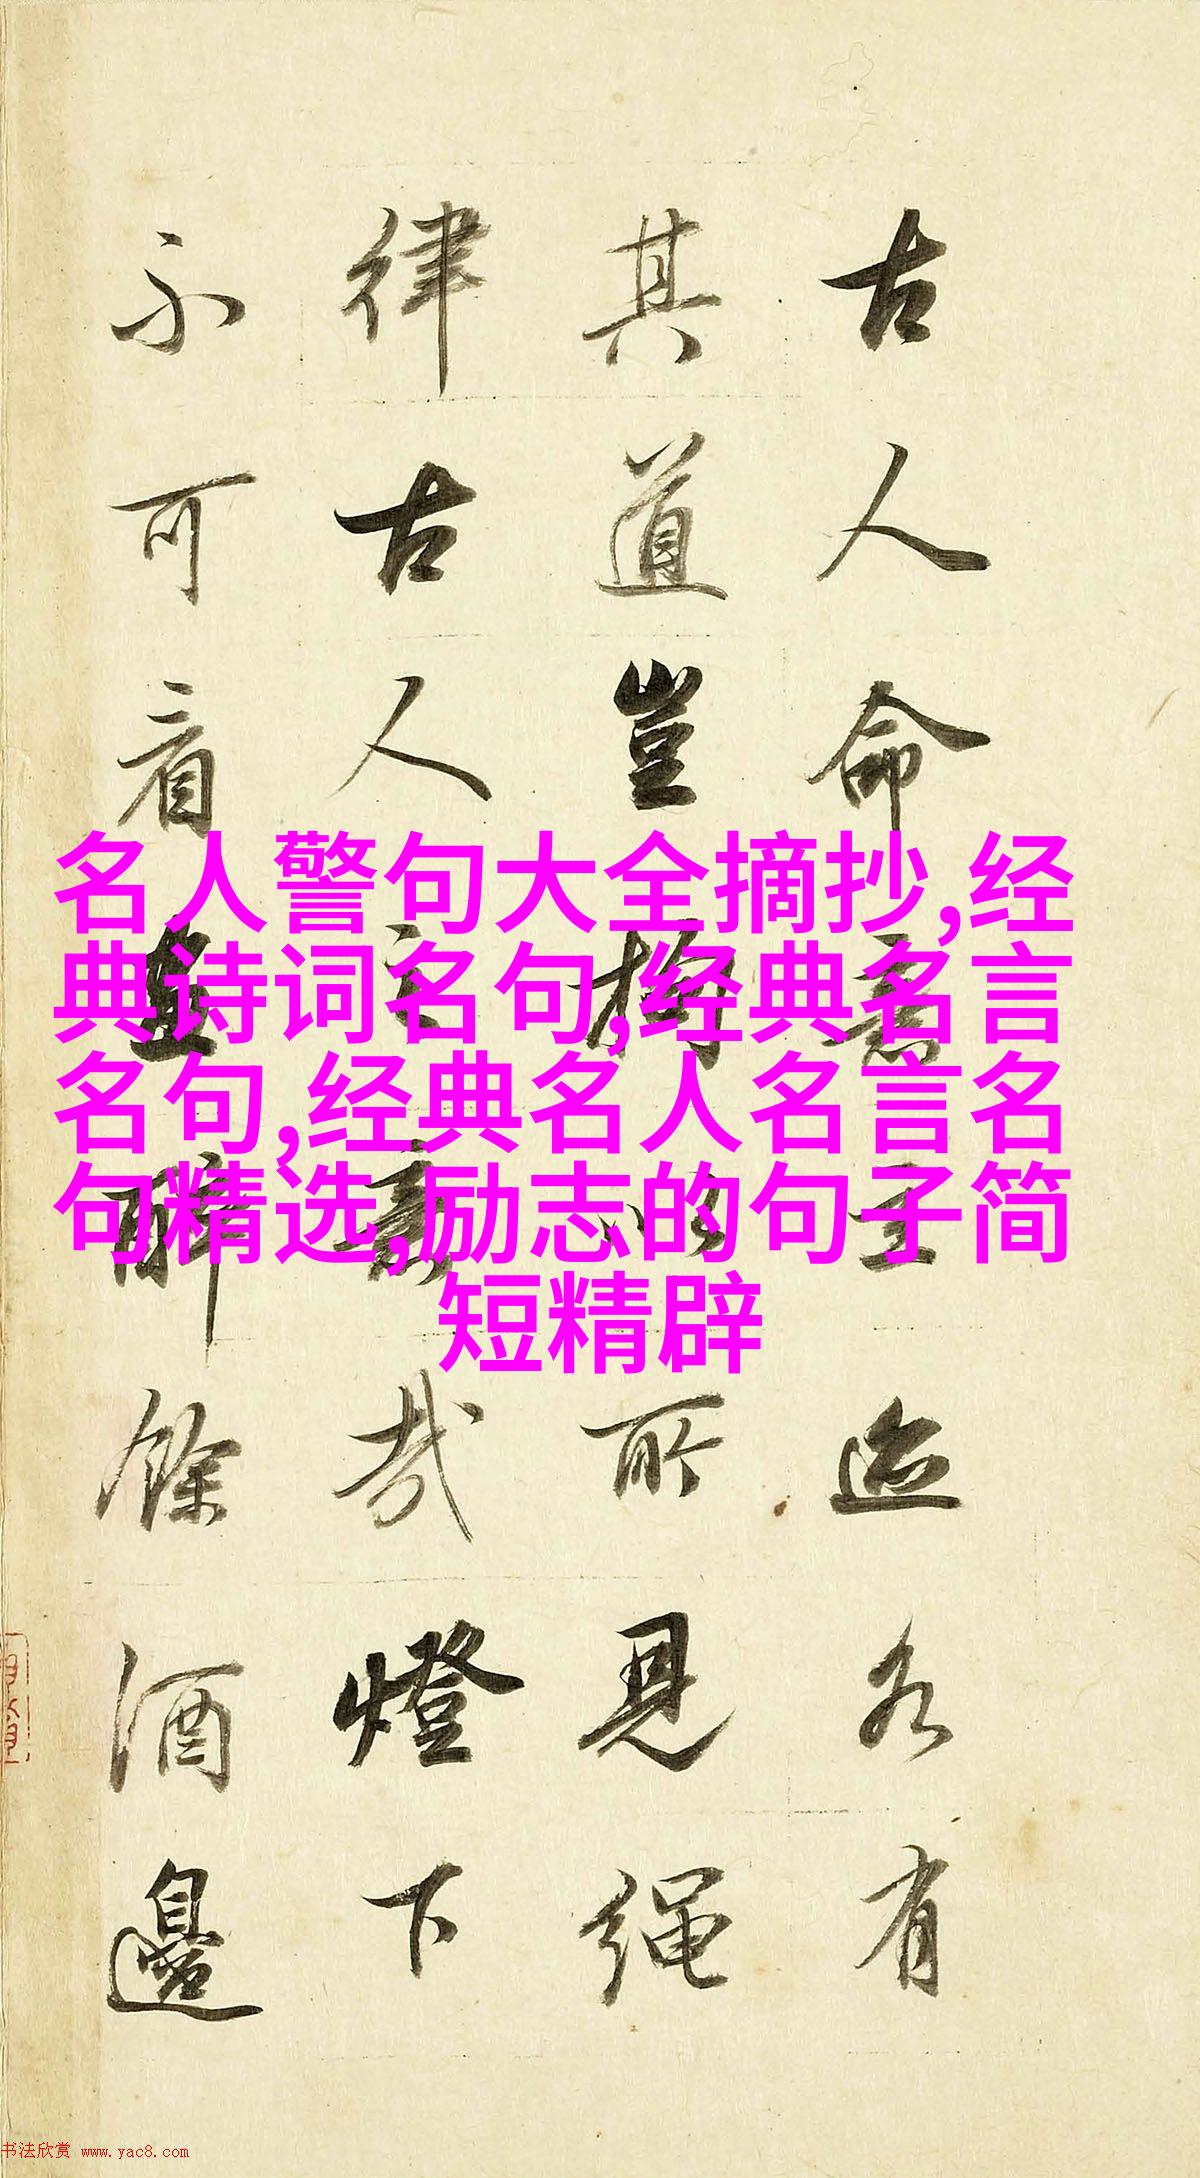 古人命意迹各有
其道豈拘以所見繩
律古人之哉燈下
不可看醉餘酒邊
名人警句大全摘抄,经
典诗词名句,经典名言
名句,经典名人名言名
句精选,励志的句子简
短精辟
书法欣赏 www.yac8.com